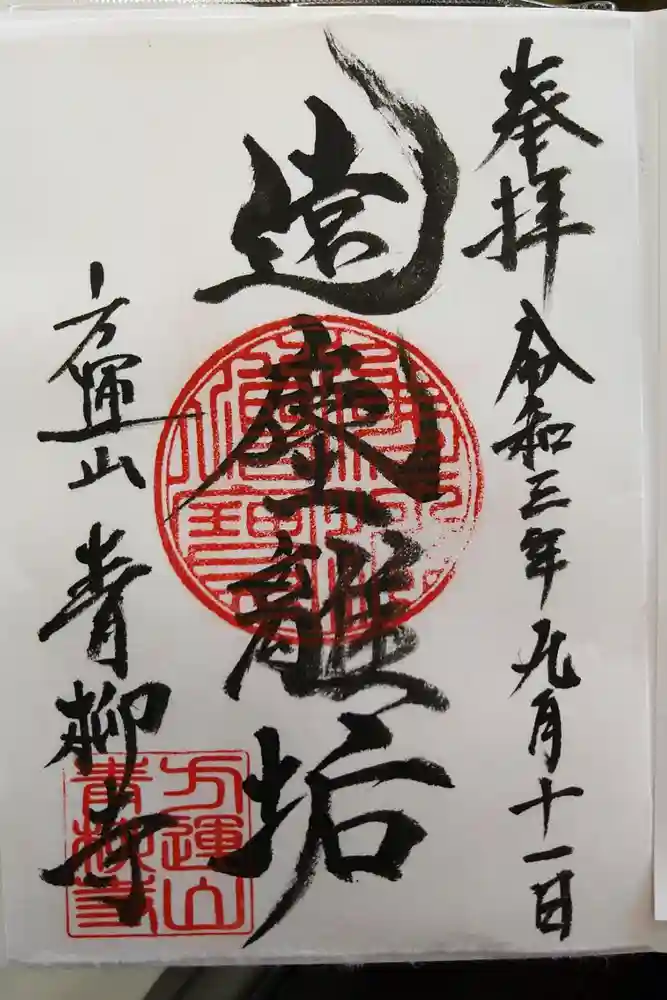 奉拝
令和三年九月十一日
遠塵離垢
方運山
青柳寺
方運山
青柳寺